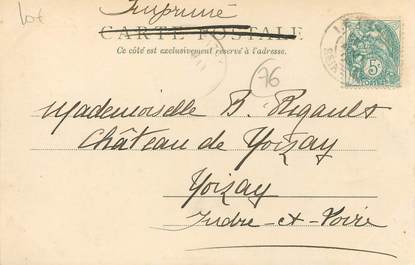 lot
Imprimé
CARTE POSTALE
Ce côté est exclusivement réservé à l'adresse.
76
5c
Mademoiselle B. Rigault
Château de Yoizay
Yoizay
Indre-et-Loire